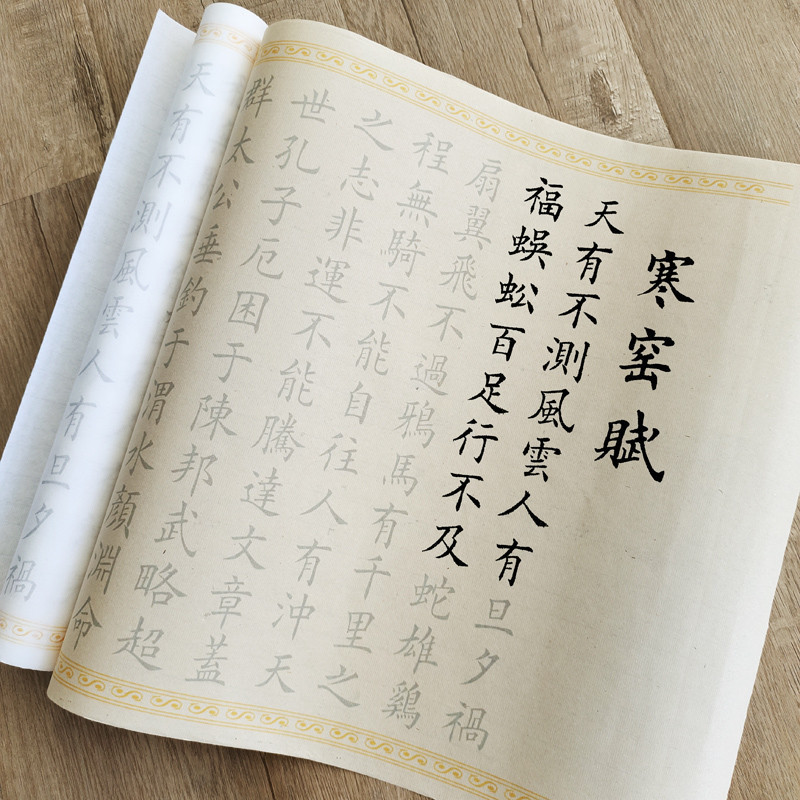 寒窑賦
天有不測風雲人有旦夕禍
福蜈蚣百足行不及蛇雄鷄
扇翼飛不過鴉馬有千里之
程無騎不能自往人有沖天
之志非運不能騰達文章蓋
世孔子厄困于陳邦武略超
群太公垂釣于渭水顏淵命
天有不測風雲人有旦夕禍